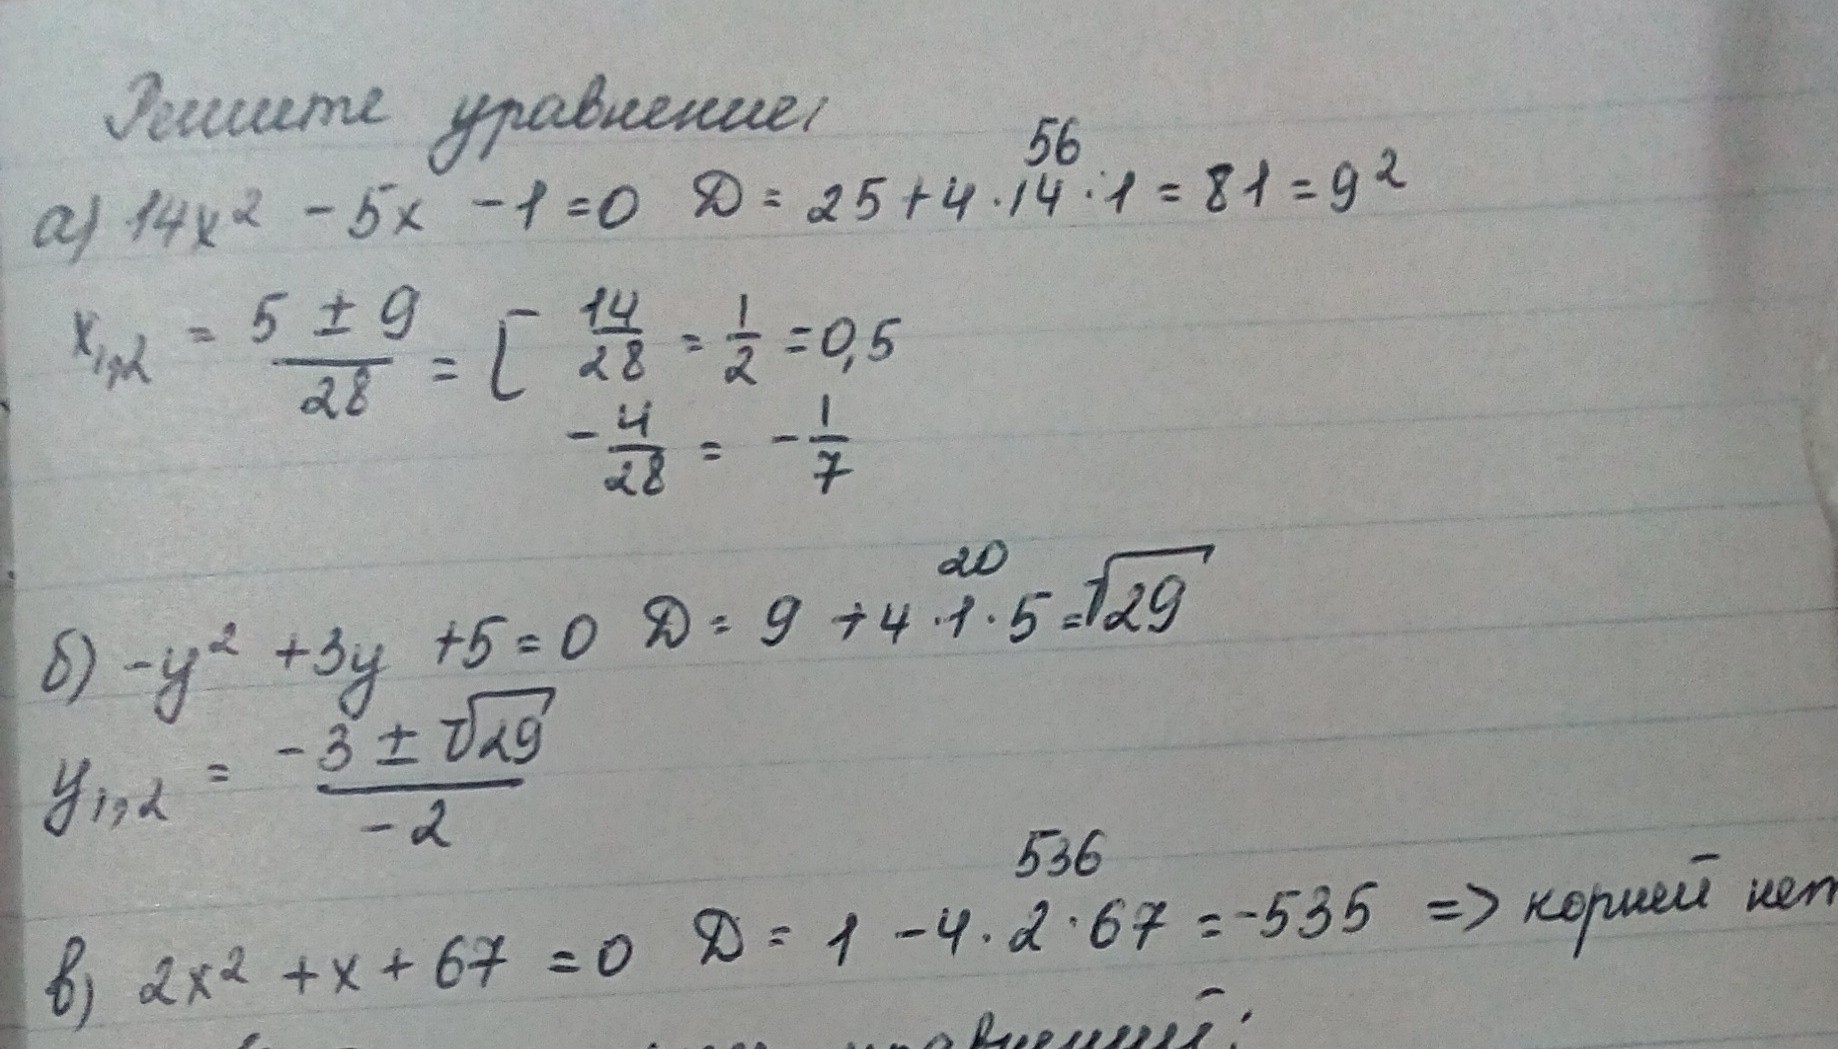 Решите уравнение:
56
а) 14x² - 5x - 1 = 0 D = 25 + 4 · 14 · 1 = 81 = 9²
x₁,₂ = (5 ± 9)/28 = [ 14/28 = 1/2 = 0,5
-4/28 = -1/7
20
б) -y² + 3y + 5 = 0 D = 9 + 4 · 1 · 5 = √29
y₁,₂ = (-3 ± √29)/(-2)
536
в) 2x² + x + 67 = 0 D = 1 - 4 · 2 · 67 = -535 => корней нет
уравнений: